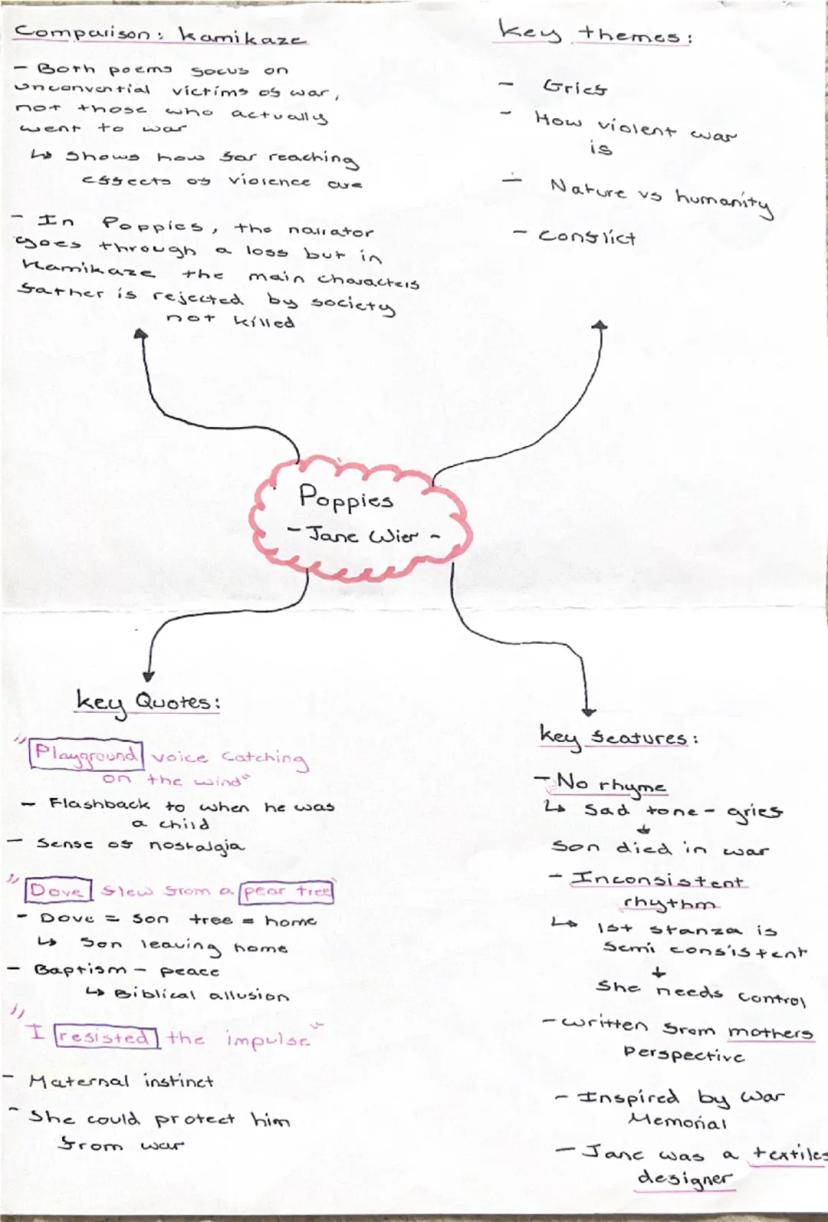 Comparison: Kamikaze
- Both poems focus on
unconvential victims of war,
not those who actually
went to war
↳ Shows how far reaching
effects of violence are
- In Poppies, the narrator
goes through a loss but in
Kamikaze the main characters
father is rejected by society
not killed
Key themes:
- Grief
- How violent war
is
- Nature vs humanity
- Conflict
Poppies
- Jane Wier -
Key Quotes:
"Playground voice catching
on the wind"
- Flashback to when he was
a child
- Sense of nostalgia
"Dove flew from a pear tree"
- Dove = son tree = home
↳ Son leaving home
- Baptism - peace
↳ Biblical allusion
"I resisted the impulse"
- Maternal instinct
- She could protect him
from war
Key features:
- No rhyme
↳ Sad tone - grief
↓
Son died in war
- Inconsistent
rhythm
↳ 1st stanza is
semi consistent
↓
She needs control
- Written from mothers
perspective
- Inspired by war
Memorial
- Jane was a textiles
designer